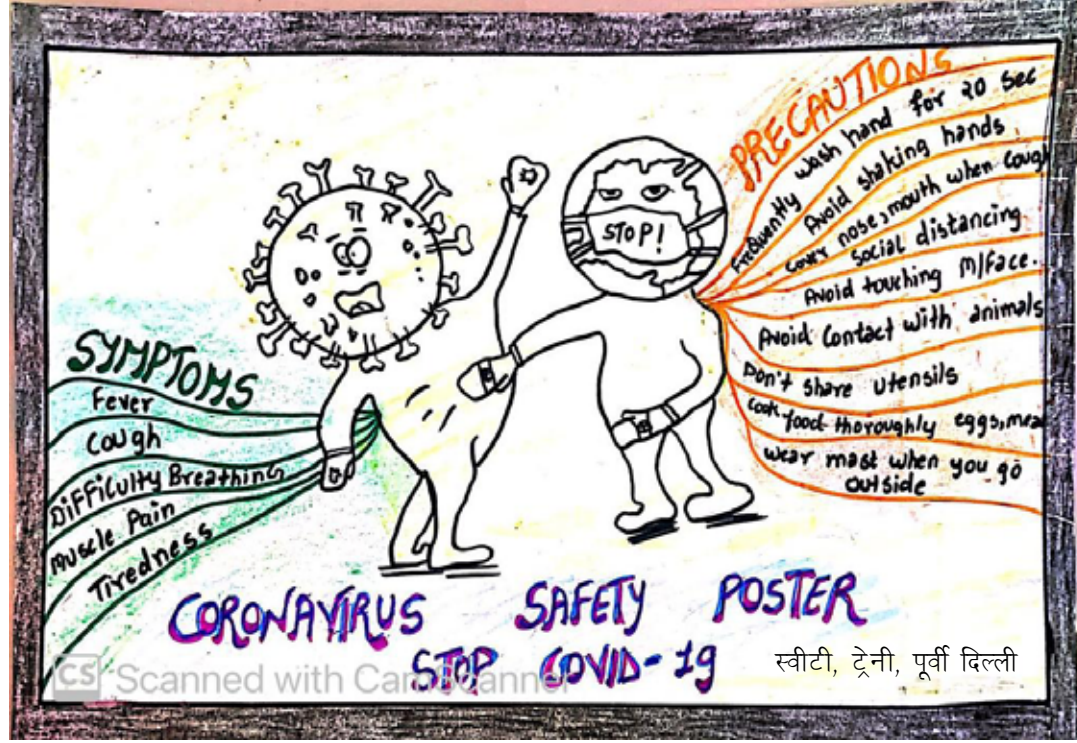 SYMPTOMS
Fever
Cough
Difficulty Breathing
Muscle Pain
Tiredness
STOP!
PRECAUTIONS
Frequently wash hand for 20 Sec
Avoid shaking hands
Cover nose, mouth when cough
Social distancing
Avoid touching M/Face.
Avoid Contact with animals
Don't share utensils
Cook food thoroughly eggs, mea
Wear mast when you go
outside
CORONAVIRUS SAFETY POSTER
STOP COVID-19
स्वीटी, ट्रेनी, पूर्वी दिल्ली
CS Scanned with CamScanner